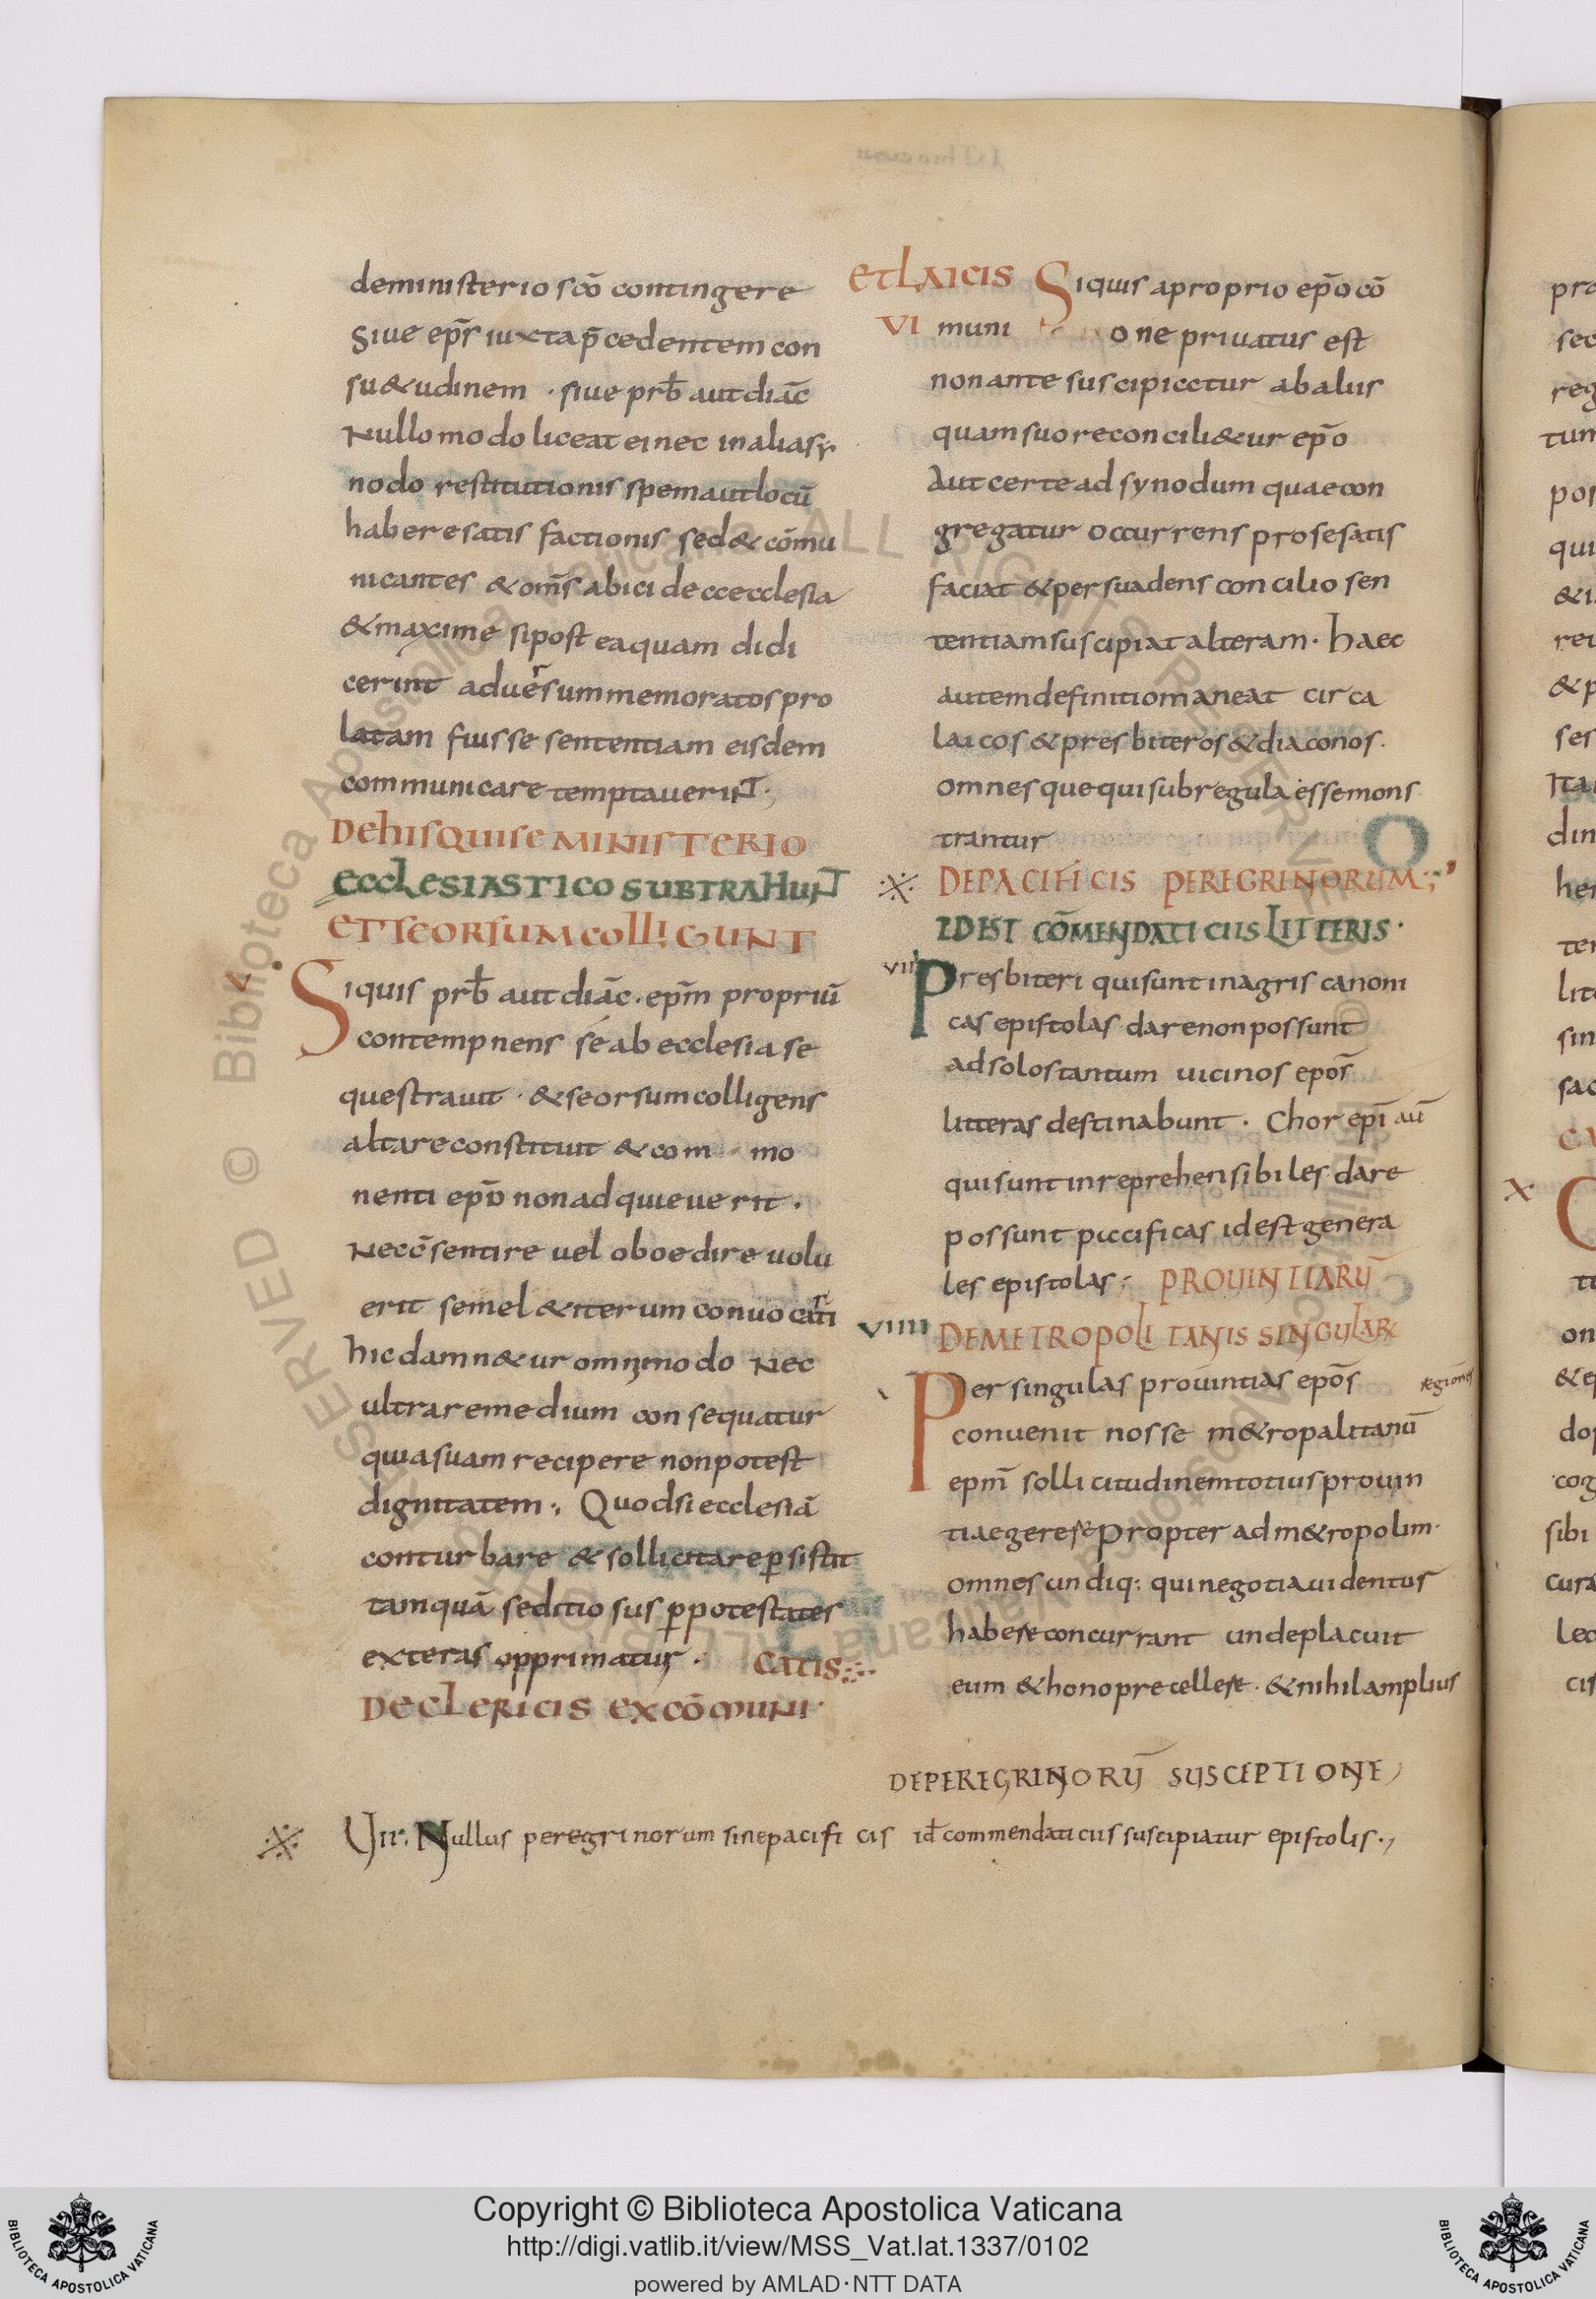 de ministerio sc̄o contingere
Siue ep̄s iuxta p̄cedentem con
su&udinem · siue prb̄ aut diāc
Nullo modo liceat ei nec in alia sy
nodo restitutionis spem aut locū
habere satis factionis sed & cōmu
nicantes & om̄s abici de ccecclesia
& maxime si post ea quam didi
cerint aduersum memoratos pro
latam fuisse sententiam eisdem
communicare temptauerint·
DE hIS QUI SE MINISTERIO
ECCLESIASTICO SUBTRAHUNT
ET SEORSUM COLLIGUNT
V
Siquis prb̄ aut diāc · ep̄m propriū
contempnens se ab ecclesia se
questrauit · & seorsum colligens
altare constituit & com mo
nenti ep̄o non adquieuerit ·
Nec c̄sentire uel oboedire uolu
erit semel & iterum conuocati
hic damn&ur omnimodo Nec
ultra remedium consequatur
quia suam recipere non potest
dignitatem ·, Quod si ecclesiā
conturbare & sollicitare p̱sistit
tamquā seditiosus p̱ potestates
exteras opprimatur ·
CATIS
DE CLERICIS EXCŌMUNI·
ET LAICIS Siquis a proprio ep̄o cō
VI muni one priuatus est
non ante suscipicctur ab aliis
quam suo reconcili&ur ep̄o
Aut certe ad synodum quae con
gregatur occurrens pro se satis
faciat & persuadens concilio sen
tentiam suscipiat alteram · haec
autem definitio maneat circa
laicos & presbiteros & diaconos ·
omnesque qui sub regula esse mons
trantur
DE PACIFICIS PEREGRINORUM
IDEST CŌMENDATICIIS LITTERIS ·
VII Presbiteri qui sunt in agris canoni
cas epistolas dare non possunt
ad solos tantum uicinos epōs
litteras destinabunt · Chorep̄i aū
qui sunt inreprehensibiles dare
possunt piccificas idest genera
les epistolas ; PROUINTIARŪ
VIIII DE METROPOLITANIS SINGULAR
Per singulas prouintias epōs regiōnes
conuenit nosse m&ropalitanū
epm̄ sollicitudinem totius prouin
tiae gerere Propter ad m&ropolim·
omnes undiq: qui negotia uidentus
habere concurrant unde placuit
eum & hono precellere · & nihil amplius
DE PEREGRINORŪ SUSCEPTIONE
VII. Nullus peregrinorum sine pacifi cis id̄ commendaticiis suscipiatur epistolis ·,
X
Copyright © Biblioteca Apostolica Vaticana
http://digi.vatlib.it/view/MSS_Vat.lat.1337/0102
powered by AMLAD·NTT DATA
BIBLIOTECA APOSTOLICA VATICANA
BIBLIOTECA APOSTOLICA VATICANA